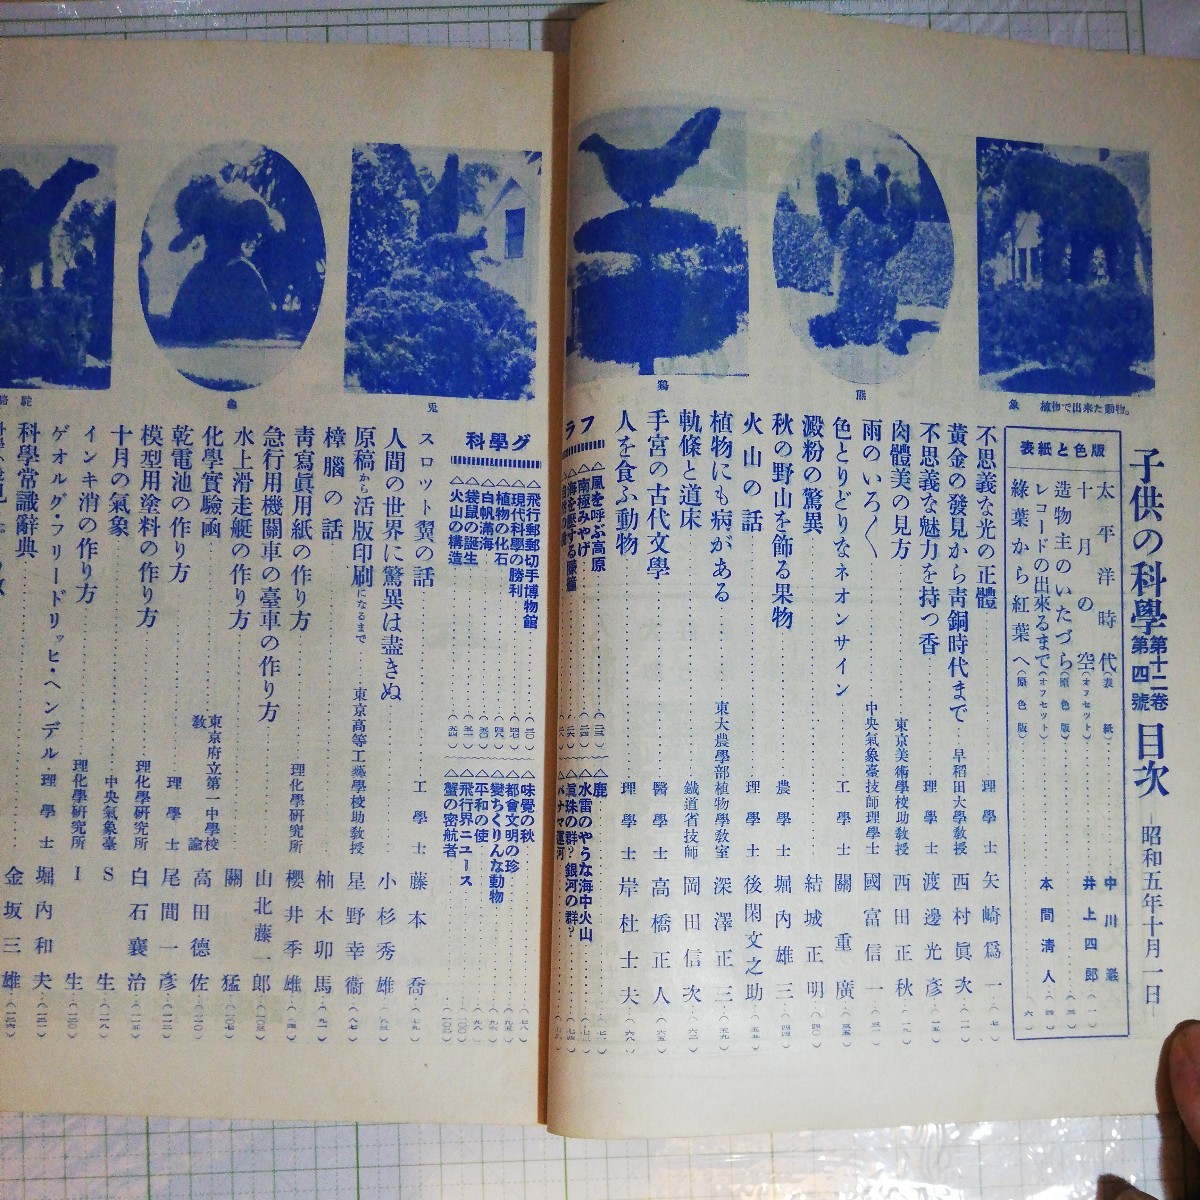 子供の科學 第十二卷 第四號 目次 ―昭和五年十月一日―
象 植物で出来た動物。
熊
鶏
兎
駱駝
表紙と色版
太平洋時代(表紙) 中川巖
十月の空(オフセット) 井上四郎(一)
造物主のいたづら(原色版)
レコードの出來るまで(オフセット) 本間清人(四)
綠葉から紅葉へ(原色版)(六)
不思義な光の正體 理學士 矢崎爲一(七)
黃金の發見から靑銅時代まで 早稻田大學敎授 西村眞次(一一)
不思義な魅力を持つ香 理學士 渡邊光彥(一五)
肉體美の見方 東京美術學校助敎授 西田正秋
雨のいろ〱 中央氣象臺技師理學士 國富信一
色とりどりなネオンサイン 工學士 關重廣(三五)
澱粉の驚異 結城正明(四〇)
秋の野山を飾る果物 農學士 堀內雄三(四四)
火山の話 理學士 後閑文之助(五五)
植物にも病がある 東大農學部植物學敎室 深澤正三(五九)
軌條と道床 鐵道省技師 岡田信次(六二)
手宮の古代文學 醫學士 高橋正人(六五)
人を食ふ動物 理學士 岸杜士夫(六八)
科學グラフ
△風を呼ぶ高原
△南極みやげ
△鹿
△水雷のやうな海中火山
△眞珠の群?銀河の群?
△パナマ運河
△飛行郵便切手博物館
△現代科學の勝利
△植物の化石
△白帆滿海
△袋鼠の誕生
△火山の構造
△味覺の秋
△都會文明の珍
△變ちくりんな動物
△平和の使
△飛行界ニュース
△蟹の密航者
スロット翼の話 工學士 藤本喬(七九)
人間の世界に驚異は盡きぬ 小杉秀雄(八三)
原稿から活版印刷になるまで 東京高等工藝學校助敎授 星野幸衞(八七)
樟腦の話 柚木卯馬(九一)
靑寫眞用紙の作り方 理化學硏究所 櫻井季雄
急行用機關車の臺車の作り方 山北藤一郞(一〇三)
水上滑走艇の作り方 關猛(一〇七)
化學實驗函 東京府立第一中學校敎諭 高田德佐
乾電池の作り方 理學士 尾間一彥
模型用塗料の作り方 理化學硏究所 白石襄治
十月の氣象 中央氣象臺 S生(一一八)
インキ消の作り方 理化學硏究所 I生
ゲオルグ・フリードリッヒ・ヘンデル 理學士 堀內和夫
科學常識辭典 金坂三雄